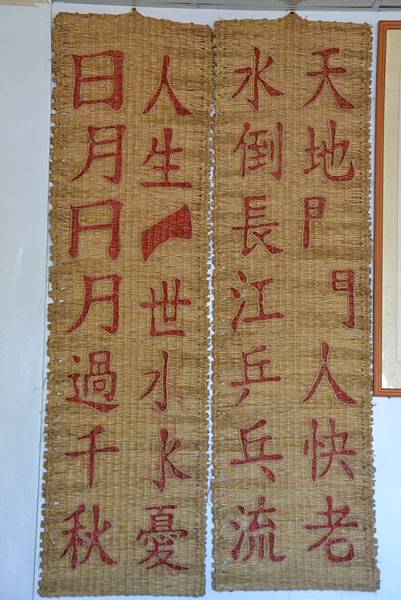 天地門門人快老
水倒長江乒乓流
人生一世水水憂
日月円月過千秋